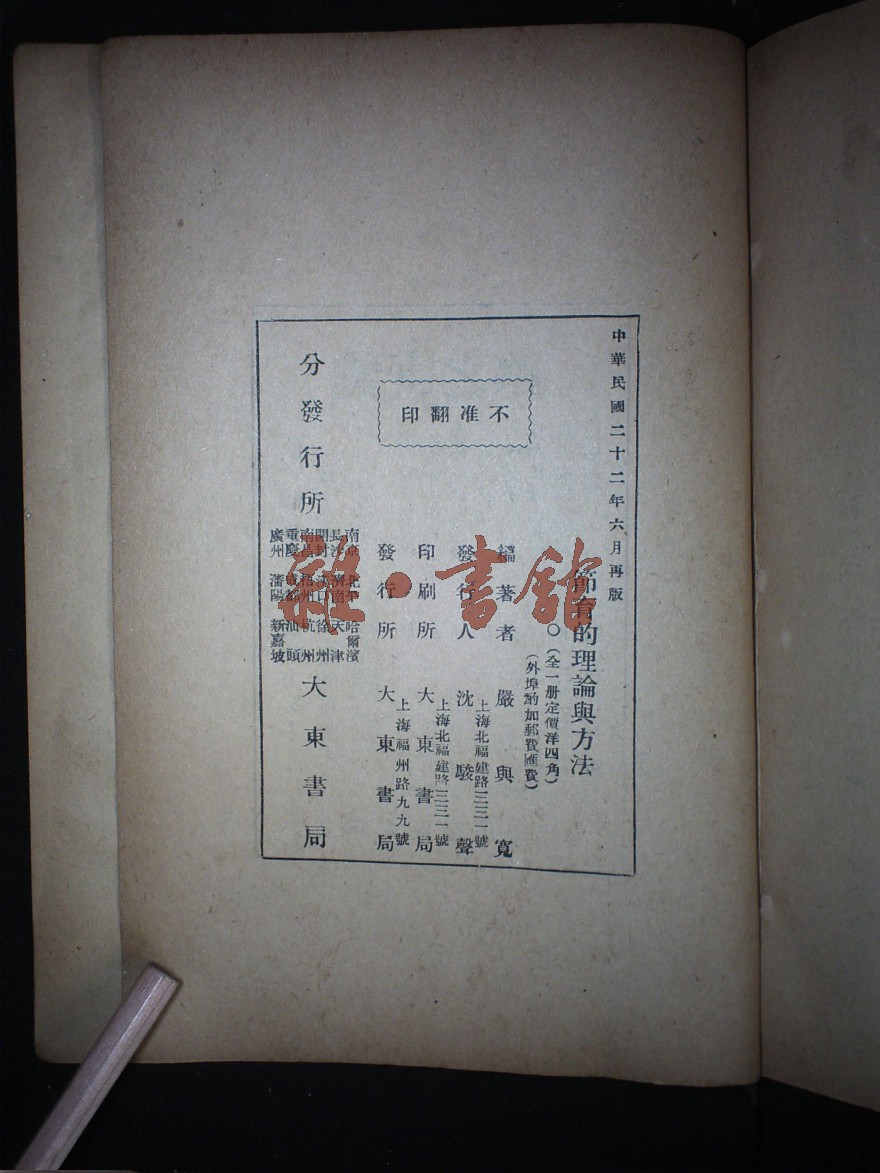 中華民國二十二年六月再版
節育的理論與方法
○（全一册定價洋四角）
（外埠酌加郵費匯費）
不准翻印
編著者 嚴與寬
發行人 沈駿聲
上海北福建路三三一號
印刷所 大東書局
上海北福建路三三一號
發行所 大東書局
上海福州路九九號
分發行所
南京 北平 哈爾濱
長沙 濟南 天津
開封 漢口 徐州
南昌 梧州 杭州
重慶 成都 汕頭
廣州 瀋陽 新嘉坡
大東書局
雜·書館